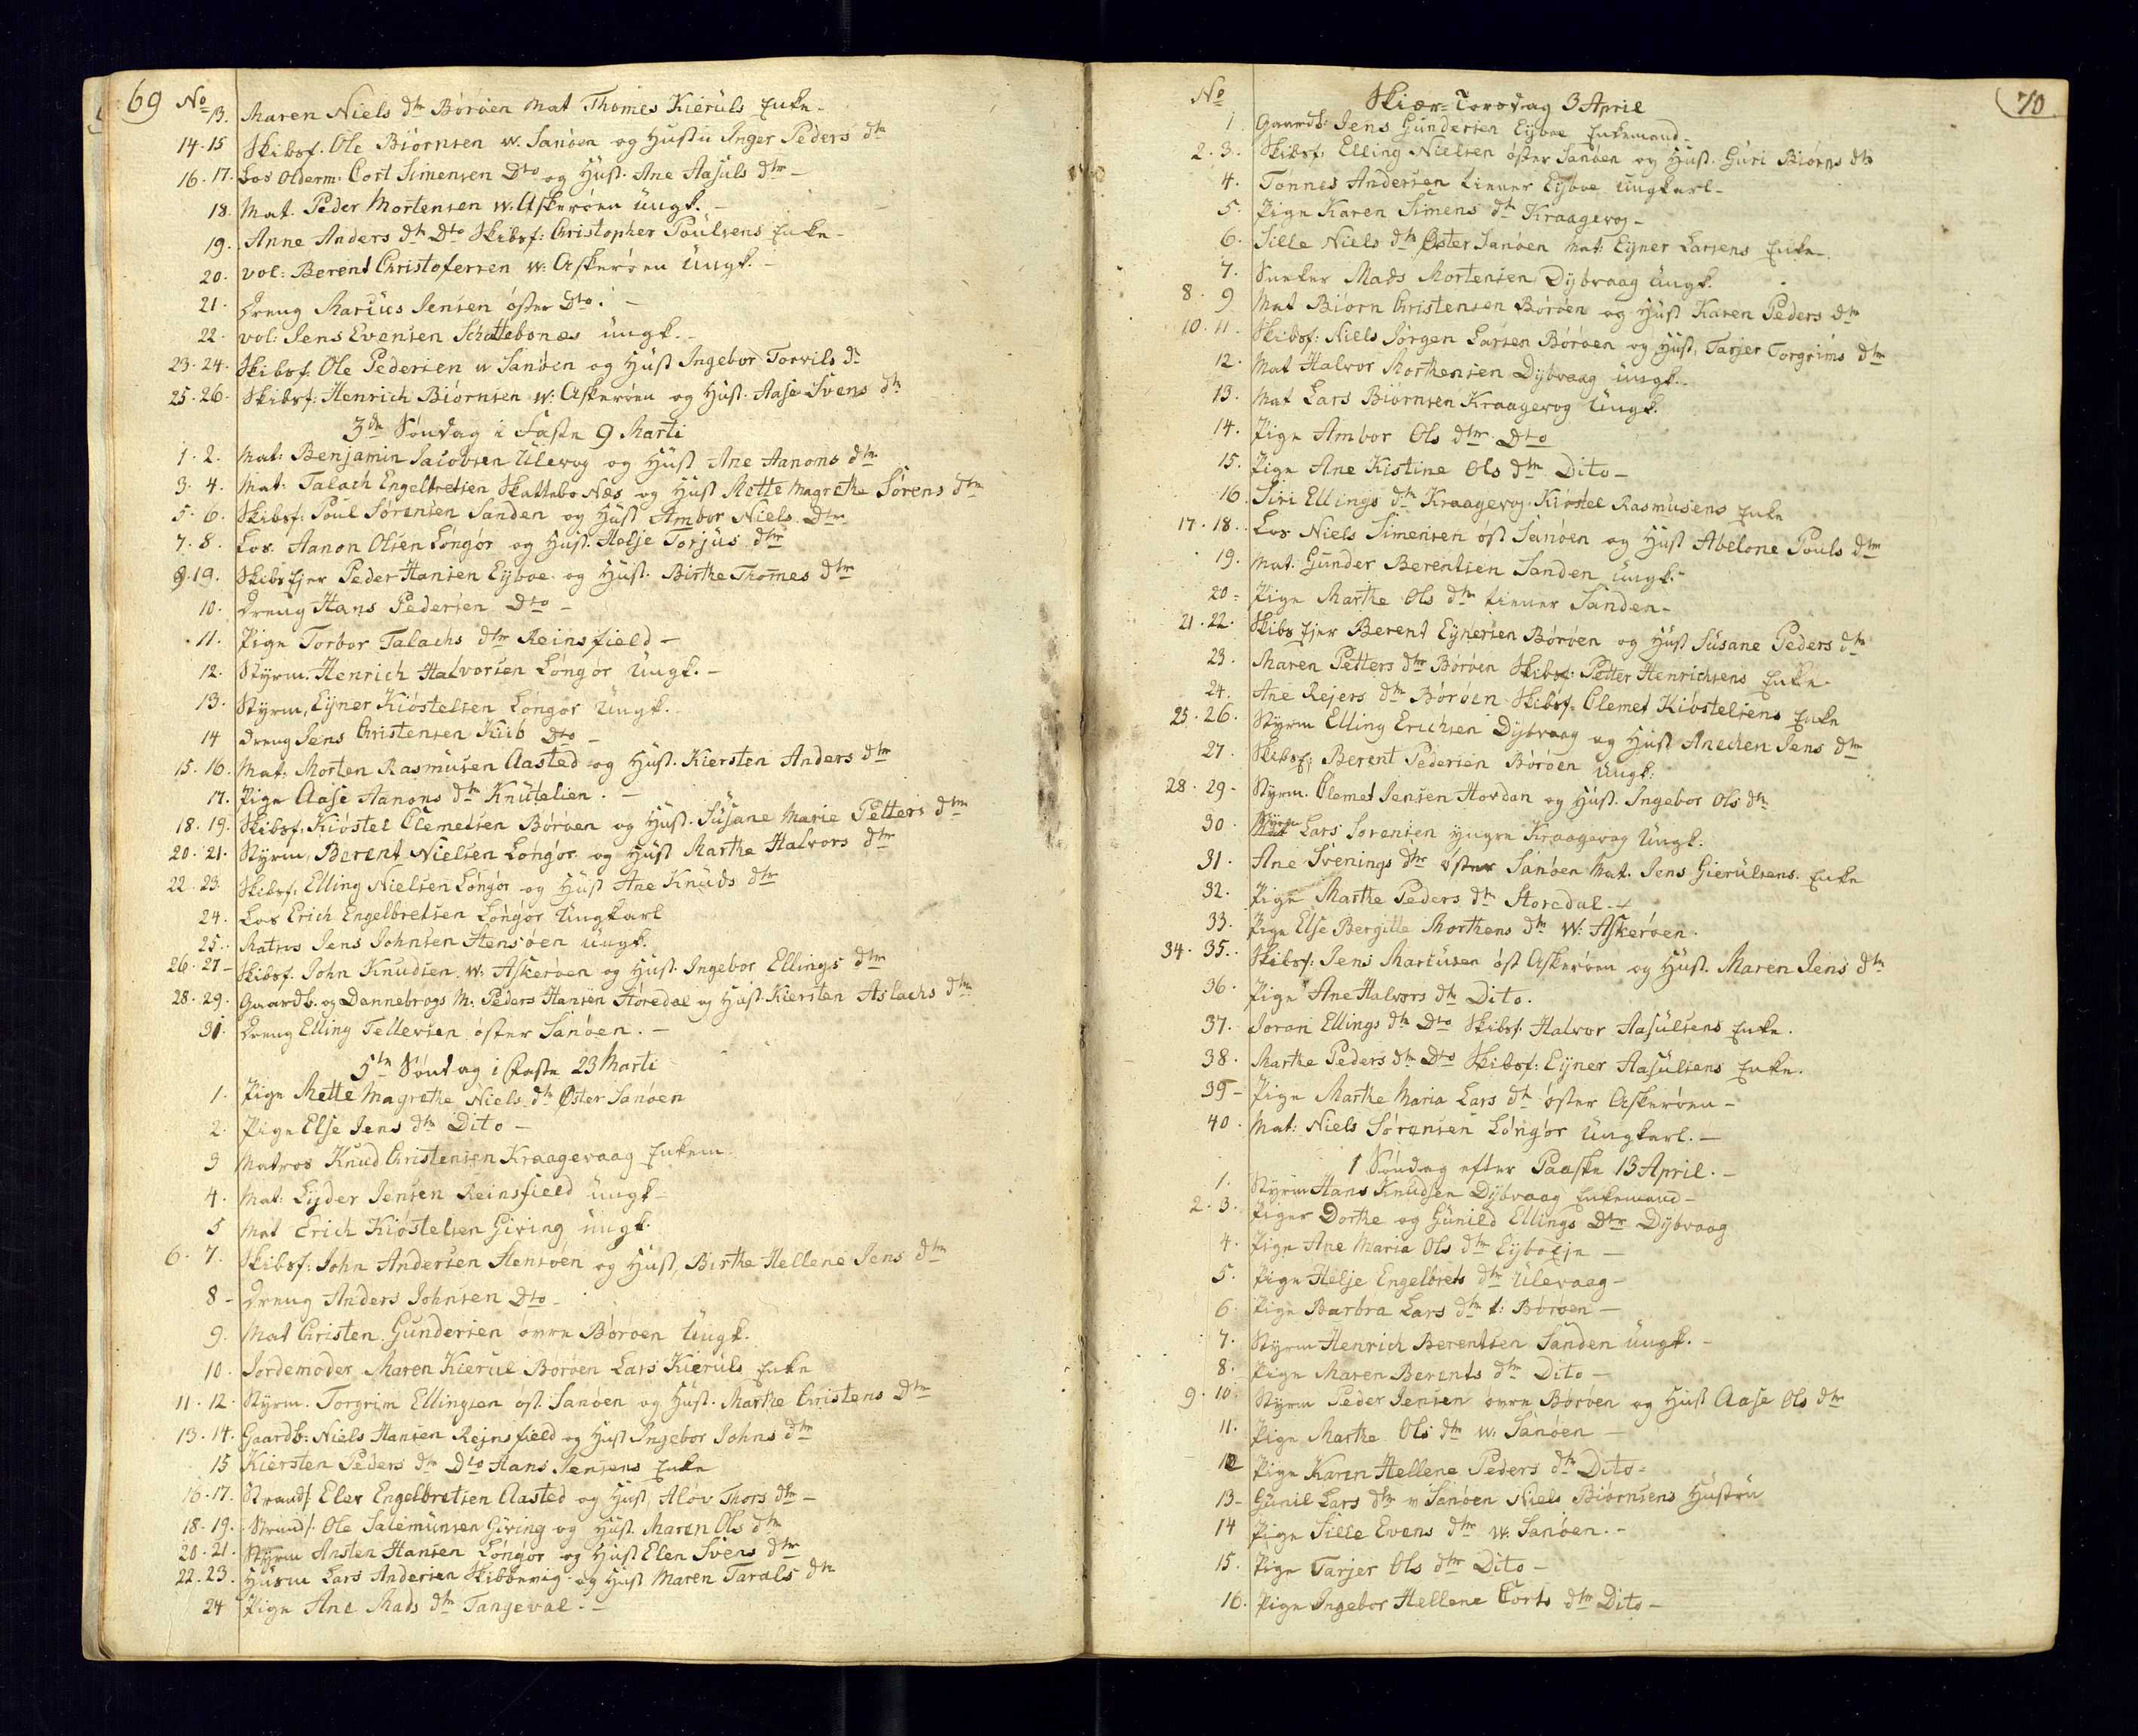 69 No
13. Maren Niels dtr Böröen Mat Thomes Kieruls Enke -
14. 15 Skibsf. Ole Biörnsen w. Sanöen og Hustü Inger Peders dtr
16. 17. Los Olderm. Cort Simensen Dto og Hust. Ane Aasuls dtr -
18. Mat. Peder Mortensen w. Askeröen üngk. -
19. Anne Anders dtr Dto Skibsf: Christopher Poülsens Enke -
20. vol: Berent Christofersen w: Askeröen üngk. -
21. Dreng Marcüs Jensen öster Dto. -
22. vol: Jens Evensen Schattebones üngk. -
23. 24. Skibsf. Ole Pedersen w Sanöen og Hüst Ingebor Torvils dr
25. 26. Skibsf: Henrich Biörnsen w: Askeröen og Hüst. Aase Svens dtr
3de Söndag i Faste 9 Marti
1. 2. Mat: Benjamin Jacobsen Ülevog og Hüst Ane Aanons dtr
3. 4. Mat: Talach Engelbretsen Skattebo Næs og Hust Mette Magrethe Sörens dtr
5. 6. Skibsf: Poul Sörensen Sanden og Hüst Ambor Niels Dtr
7. 8. Los. Aanon Olsen Löngör og Hust. Helje Torjüs dtr
9. 19. Skibs Ejer Peder Hansen Eijboe og Hust. Birthe Thomes dtr
10. Dreng Hans Pedersen Dto -
11. Pige Torbor Talachs dtr Reinsfield -
12. Styrm. Henrich Halvorsen Löngör Üngk. -
13. Styrm, Eijner Kiöstelsen Löngör Üngk.
14 Dreng Jens Christensen Kiib Dto -
15. 16. Mat: Morten Rasmüsen Aasted og Hust. Kiersten Anders dtr
17. Pige Aase Aanons dtr Knütelien. -
18. 19. Skibsf. Kiöstel Clemetsen Böröen og Hust. Süsane Marie Petters dtr
20. 21. Styrm, Berent Nielsen Löngör og Hüst Marthe Halvors dtr
22. 23. Skibsf. Elling Nielsen Löngör og Hüst Ane Knüds dtr
24. Los Erich Engelbretsen Löngör Üngkarl
25. Matros Jens Johnsen Stensöen üngk.
26. 27 - Skibsf. John Knüdsen w. Askeröen og Hust. Ingebor Ellings dtr
28. 29. Gaardb. og Dannebrogs M: Peders Hansen Störedal og Hüst. Kiersten Aslachs dtr
31. Dreng Elling Tellevsen öster Sanöen. -
5te Söndag i Faste 23 Marti
1. Pige Mette Magrethe Niels dtr Øster Sanöen
2. Pige Else Jens dtr Dito -
3 Matros Knud Christensen Kraagevaag Enkem
4. Mat: Lijder Jensen Reinsfield üngk -
5 Mat Erich Kiöstelsen Giving üngk.
6. 7. Skibsf: John Andersen Stensöen og Hüst, Birthe Hellene Jens dtr
8 - Dreng Anders Johnsen Dto -
9. Mat Christen Gundersen övre Böröen Üngk.
10. Jordemoder Maren Kierul Böröen Lars Kieruls Enke
11. 12. Styrm. Torgrim Ellingsen öst. Sanöen og Hüst. Marthe Christens Dtr
13. 14. Gaardb: Niels Hansen Rejnsfield og Hust Ingebor Johns dtr
15 Kiersten Peders dtr Dto Hans Jensens Enke
16. 17. Strands. Elev Engelbretsen Aasted og Hüst, Alöv Thors dtr -
18. 19. Strands. Ole Salemünsen Giving og Hust Maren Ols dtr
20. 21. Styrm Ansten Hansen Löngör og Hust Elen Svens dtr
22. 23. Husm Lars Andersen Skibbevig og Hust Maren Tarals dtr
24 Pige Ane Mads dtr Tangeval. -
70
No
Skiær-Torsdag 3 April
1 Gaardb: Jens Gündersen Eijboe Enkemand -
2. 3. Skibsf: Elling Nielsen öster Sanöen og Hust. Güri Biörns dtr
4. Tönnes Andersen tiener Eijboe Üngkarl -
5. Pige Karen Simens dtr Kraagevog -
6. Sille Niels dtr Øster Sanöen Mat: Eijner Larsens Enke -
7. Sneker Mads Mortensen Dijbvaag Üngk.
8. 9 Mat Biörn Christensen Böröen og Hüst Karen Peders dtr
10. 11. Skibsf: Niels Jörgen Larsen Böröen og Hust, Tarjer Torgrims dtr
12. Mat Halvor Morthensen Dijbvaag üngk.
13. Mat Lars Biörnsen Kraagevog Üngk.
14. Pige Ambor Ols dtr Dto
15. Pige Ane Kistine Ols dtr Dito -
16. Siri Ellings dtr Kraagevog. Kiöstel Rasmusens Enke
17. 18. Los Niels Simensen öst Sanöen og Hust Abelone Pouls dtr
19. Mat. Günder Berentsen Sanden üngk. -
20 - Pige Marthe Ols dtr tiener Sanden -
21. 22. Skibs Ejer Berent Eijnersen Böröen og Hüst Süsane Peders dtr
23. Maren Petters dtr Böröen Skibsf: Petter Henrichsens Enke.
24. Ane Rejers dtr Böröen Skibsf: Clemet Kiöstelsens Enke
25. 26. Styrm Elling Erichsen Dijbvaag og Hüst Anechen Jens dtr
27. Skibsf; Berent Pedersen Böröen üngk:
28. 29 - Styrm. Clemet Jensen Hovdan og Hust. Ingebor Ols dtr
30. Styrm Lars Sorensen yngre Kraagevog Üngk.
31. Ane Svenings dtr öster Sanöen Mat. Jens Gierülsens. Enke
32. Pige Marthe Peders dtr Storedal. -
33. Pige Else Bergitte Morthens dtr W: Askeröen.
34. 35. Skibsf: Jens Marcüsen öst Askeröen og Hüst. Maren Jens dtr
36. Pige Ane Halvors dtr Dito.
37. Joran Ellings dtr Dto Skibsf. Halvor Aasülsens Enke.
38. Marthe Peders dtr Dto Skibsf: Eijner Aasülsens Enke.
39 - Pige Marthe Maria Lars dtr öster Askeröen -
40. Mat: Niels Sörensen Löngör Üngkarl. -
1 Söndag efter Paaske 13 April. -
1. Styrm Hans Knüdsen Dijbvaag Enkemand -
2. 3. Piger Dorthe og Günild Ellings Dtr Dijbvaag
4. Pige Ane Maria Ols dtr Eijboeje -
5. Pige Helje Engelbrets dtr Ülevaag -
6. Pige Barbra Lars dtr t: Böröen -
7. Styrm Henrich Berentsen Sanden üngk. -
8. Pige Maren Berents dtr Dito -
9. 10. Styrm Peder Jensen övre Böröen og Hust Aase Ols dtr
11. Pige Marthe Ols dtr w. Sanöen -
12 Pige Karen Hellene Peders dtr Dito -
13 - Günil Lars dtr w Sanöen Niels Biörnsens Hüstrü
14 Pige Sille Evens dtr w. Sanöen. -
15. Pige Tarjer Ols dtr Dito -
16. Pige Ingebor Hellene Corts dtr Dito -